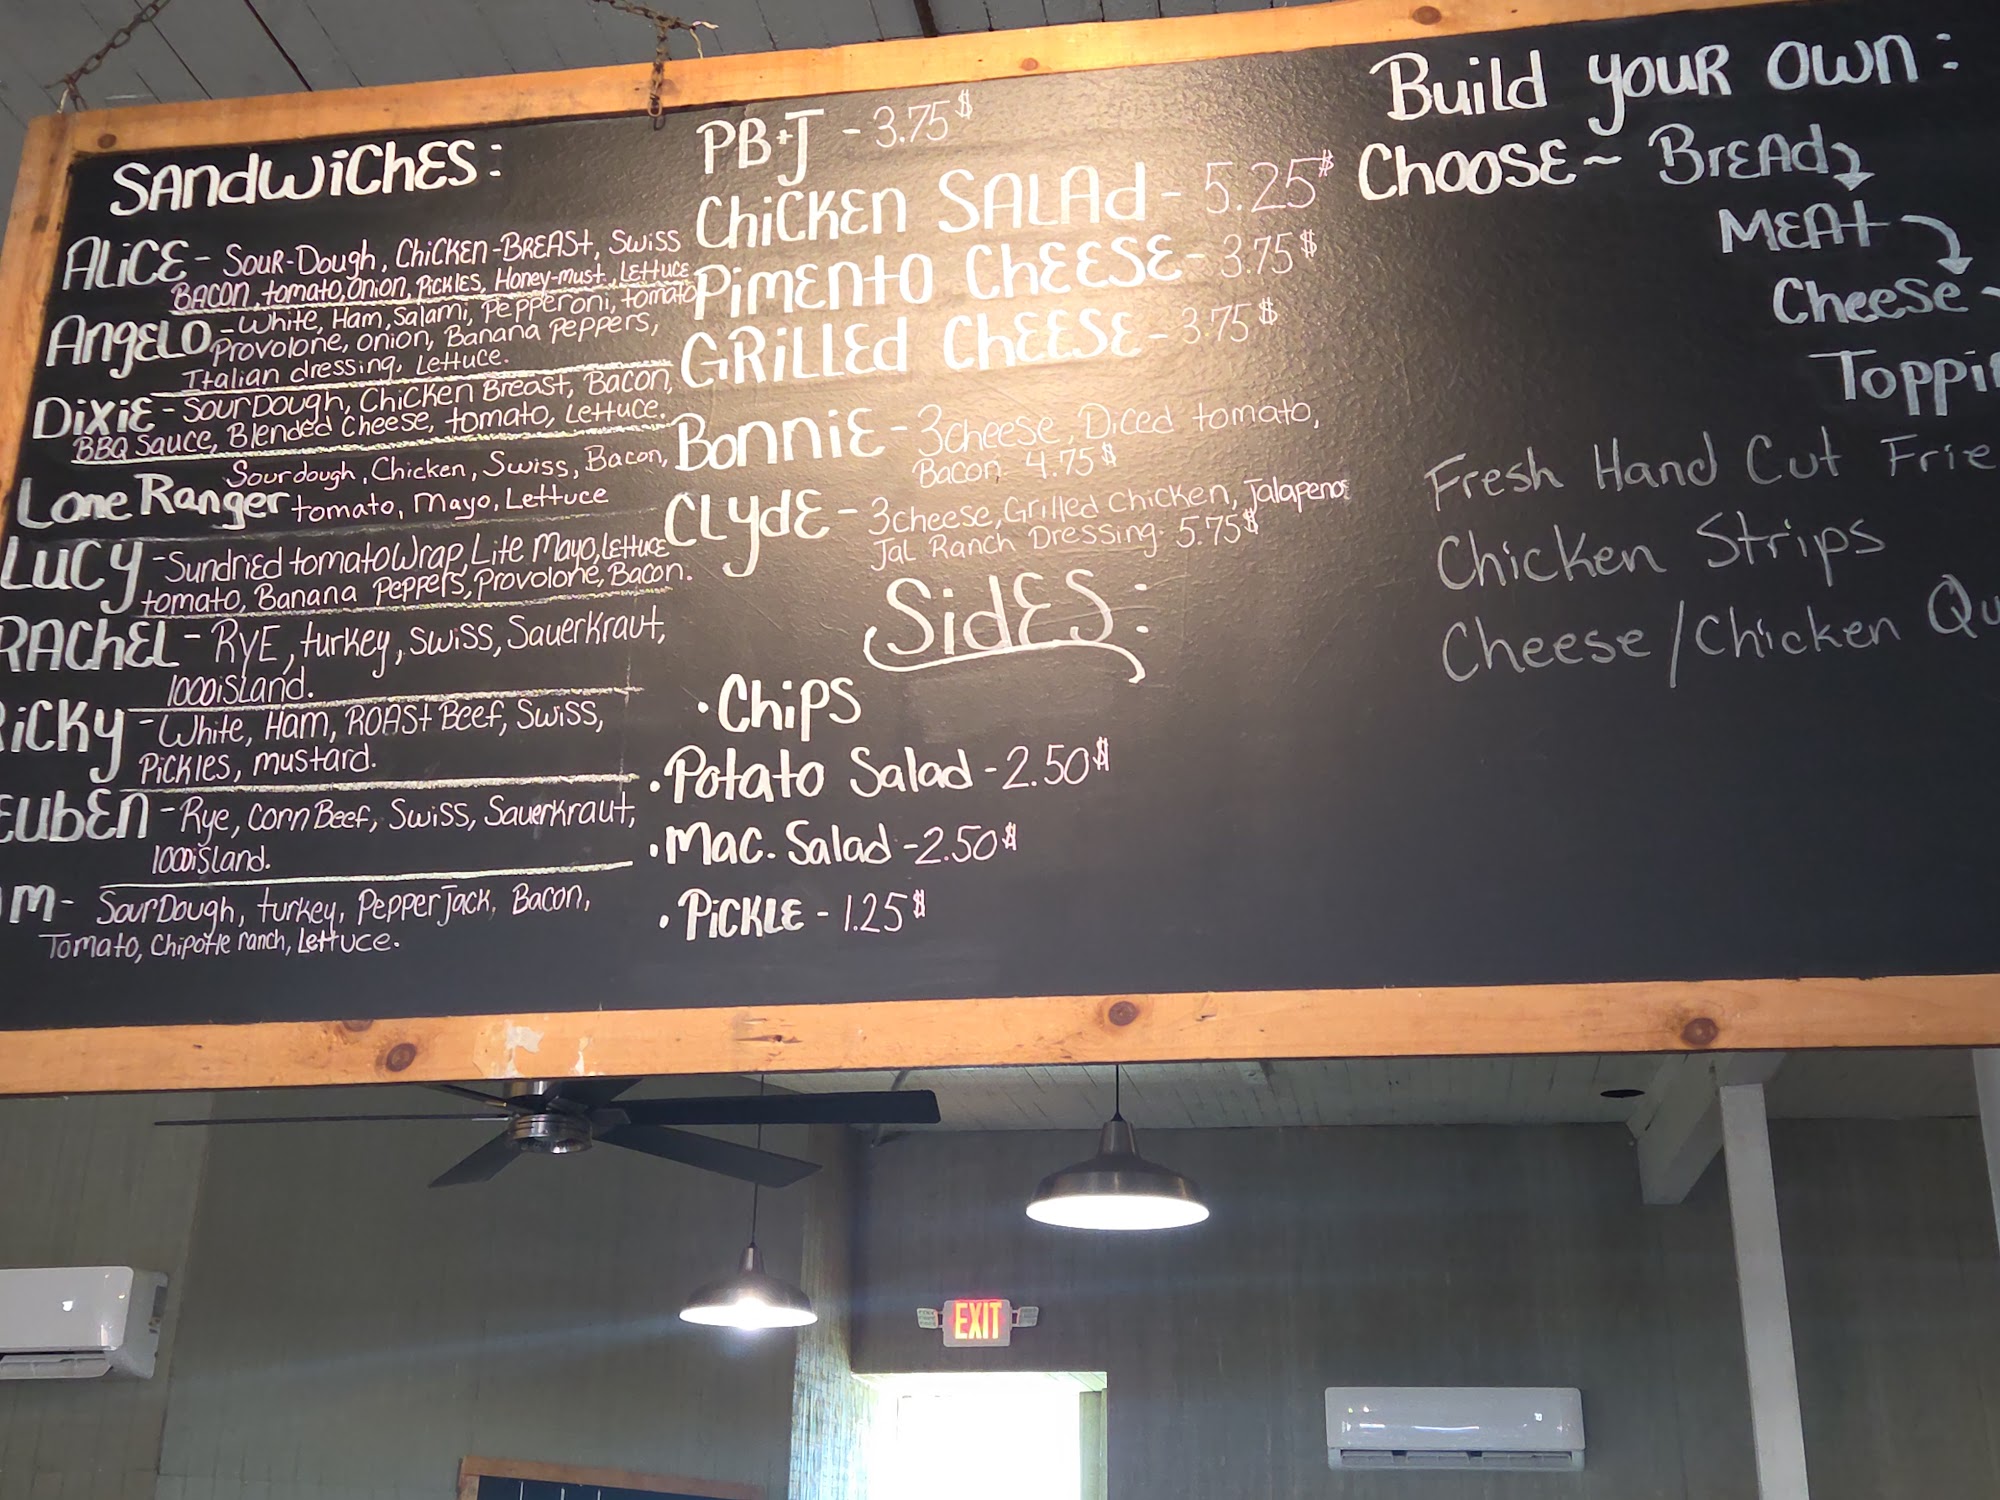 SANdWiChES:
ALiCE - SOUR-DOugh, ChiCKEN-BREASt, Swiss
BACON, tomato, onion, Pickles, Honey-must., LEttuce
ANgELO - White, Ham, Salami, Pepperoni, tomato
Provolone, onion, Banana peppers,
Italian dressing, Lettuce.
DixiE - SourDough, Chicken Breast, Bacon,
BBQ Sauce, Blended Cheese, tomato, Lettuce.
Sourdough, Chicken, Swiss, Bacon,
Lone Ranger tomato, Mayo, Lettuce
LuCy - Sundried tomato Wrap, Lite Mayo, Lettuce
tomato, Banana Peppers, Provolone, Bacon.
RAChEL - RYE, turkey, Swiss, SauerKraut,
1000island.
iCKy - White, Ham, ROASt Beef, Swiss,
Pickles, mustard.
EubEN - Rye, Corn Beef, Swiss, Sauerkraut,
1000island.
m - SourDough, turkey, PepperJack, Bacon,
Tomato, Chipotle ranch, Lettuce.
PB+J - 3.75$
ChiCKEN SALAd - 5.25$
PimENtO ChEESE - 3.75$
GRiLLEd ChEESE - 3.75$
BonniE - 3cheese, Diced tomato,
Bacon. 4.75$
CLydE - 3cheese, Grilled Chicken, Jalapenos
Jal Ranch Dressing. 5.75$
SidES:
• Chips
• Potato Salad - 2.50$
• Mac. Salad - 2.50$
• PiCKLE - 1.25$
Build youR own:
ChOOSE ~ BREAd
MEAt
Cheese
Toppi
Fresh Hand Cut Frie
Chicken Strips
Cheese/Chicken Qu
EXIT